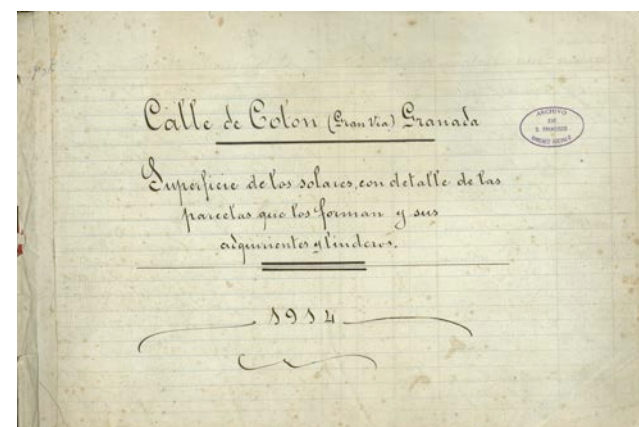 Calle de Colon (Gran Via) Granada
ARCHIVO
DE
Superficie de los solares, con detalle de las
parcelas que los forman y sus
adquirientes y linderos.
1914